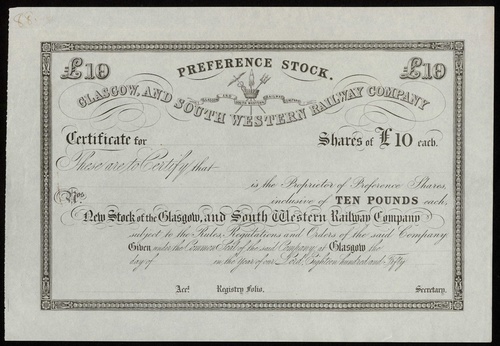 PREFERENCE STOCK.
£10 £10
GLASGOW, AND SOUTH WESTERN RAILWAY COMPANY
Certificate for Shares of £10 each.
These are to Certify that
is the Proprietor of Preference Shares,
Nos. inclusive of TEN POUNDS each,
New Stock of the Glasgow, and South Western Railway Company
subject to the Rules, Regulations and Orders of the said Company
Given under the Common Seal of the said Company, at Glasgow the
day of in the Year of our Lord, Eighteen hundred and Fifty
Acct. Registry Folio. Secretary.